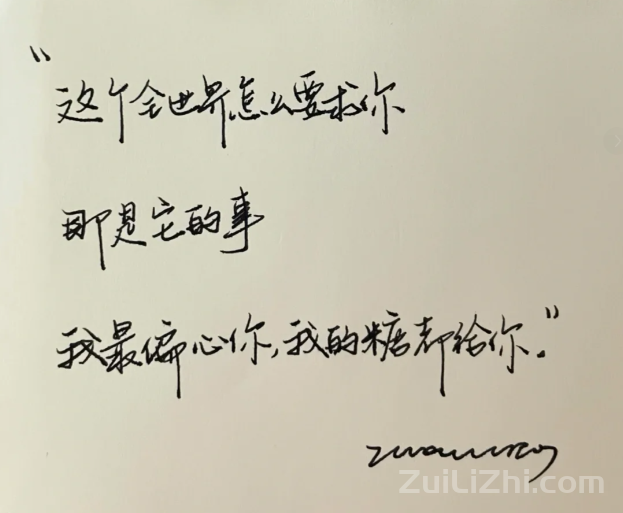 “这个全世界怎么要求你
那是它的事
我最偏心你,我的糖都给你。”
ZuiLiZhi.com